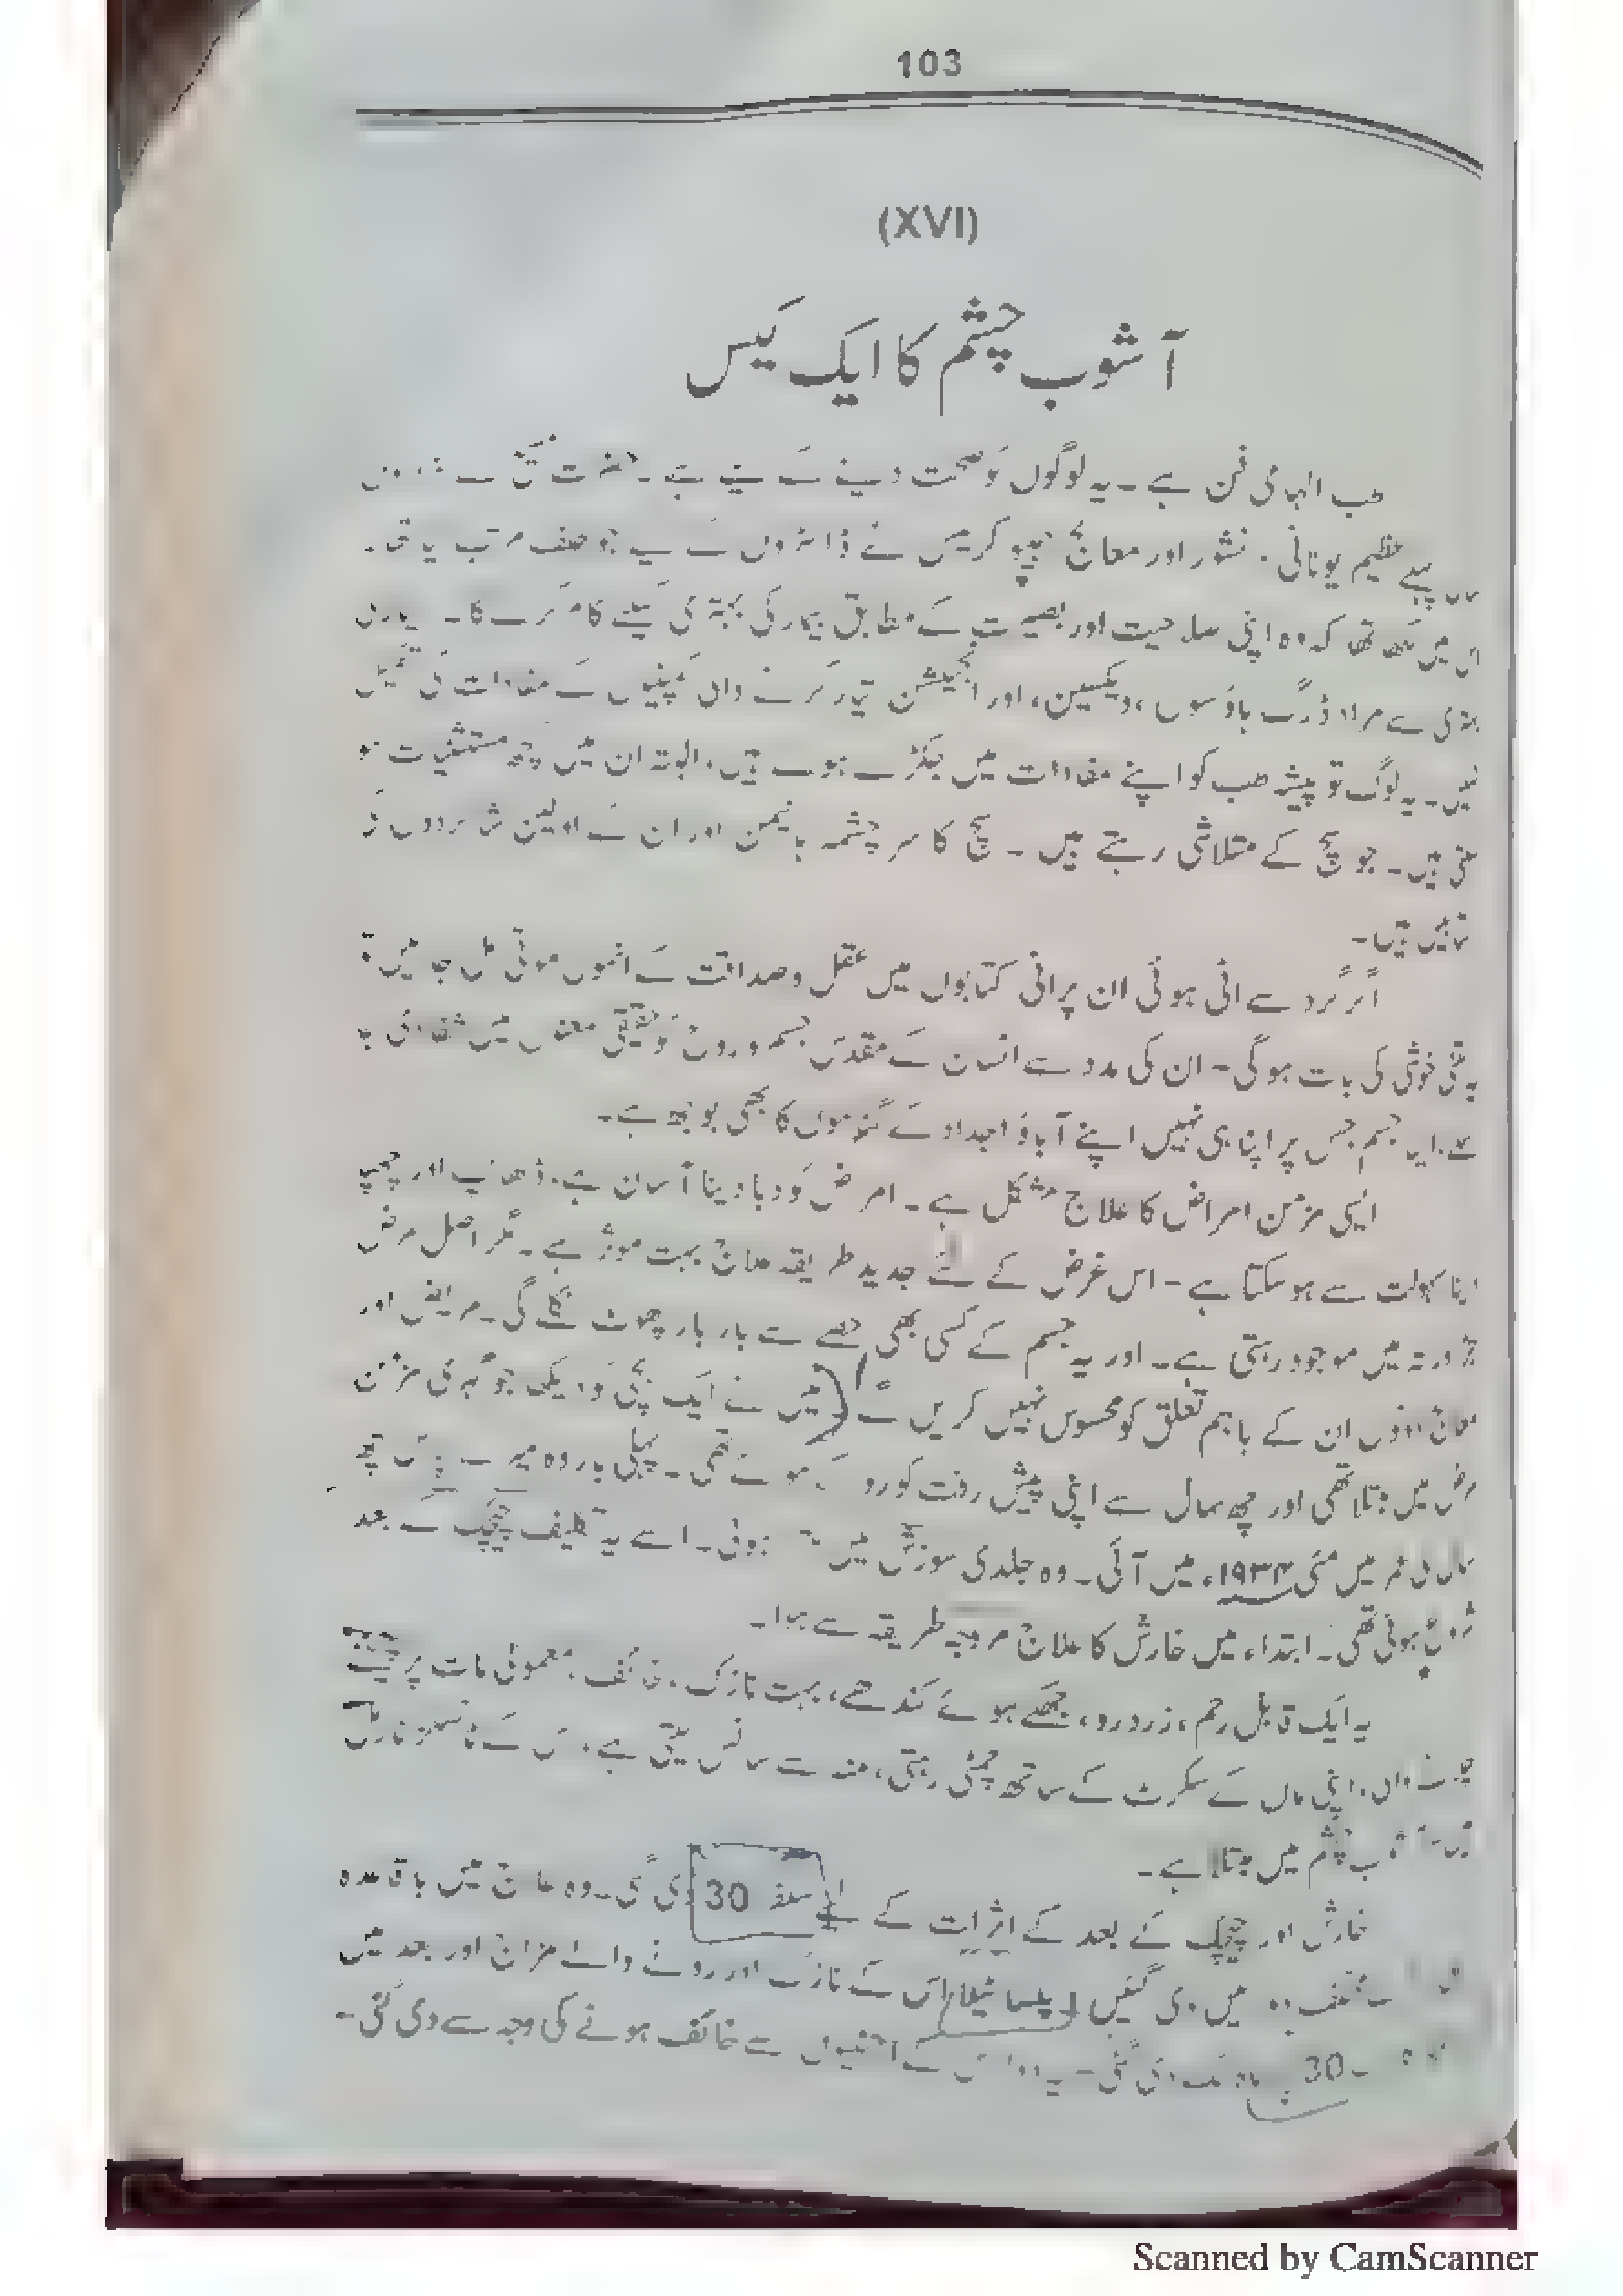 103
(XVI)
آشوب چشم کا ایک کیس
طب الہامی فن ہے ۔ یہ لوگوں کو صحت دینے کے لیے ہے ۔ حضرت مسیح سے
پہلے عظیم یونانی اور معالج ہیپوکریٹس نے ڈاکٹروں کے لیے جو حلف مرتب کیا تھا ۔
اس میں لکھا تھا کہ وہ اپنی صلاحیت اور بصیرت کے مطابق بیمار کی بہتری کیلئے کام کرے گا ۔ بیمار کی
بہتری سے مراد ڈرگ ہاؤسوں ، ویکسین ، اور انجکشن تیار کرنے والی کمپنیوں کے مفادات کی تکمیل
نہیں ۔ یہ لوگ تو پیشہ طب کو اپنے مفادات میں جکڑے ہوئے ہیں ، البتہ ان میں کچھ مستثنیات ہو
سکتی ہیں ۔ جو سچ کے متلاشی رہتے ہیں ۔ سچ کا سر چشمہ ہانیمن اور ان کے اولین شاگردوں کی
ہیں ۔
اگر گرد سے اٹی ہوئی ان پرانی کتابوں میں عقل و صداقت کے انمول موتی مل جائیں تو
یہ بڑی خوشی کی بات ہوگی ۔ ان کی مدد سے انسان کے مقدس جسم و روح کو حقیقی معنوں میں شفا دی جا
ایسا جسم جس پر اپنا ہی نہیں اپنے آباؤ اجداد کے گناہوں کا بھی بوجھ ہے ۔
ایسی مزمن امراض کا علاج مشکل ہے ۔ امراض کو دبا دینا آسان ہے ، ڈھانپ اور چھپا
دینا سہولت سے ہو سکتا ہے ۔ اس غرض کے لئے جدید طریقہ علاج بہت موثر ہے ۔ مگر اصل مرض
میں موجود رہتی ہے ۔ اور یہ جسم کے کسی بھی حصے سے بار بار پھوٹ نکلے گی ۔ مریض اور
معالج دونوں ان کے باہم تعلق کو محسوس نہیں کریں گے ( میں نے ایک بچی کو دیکھا جو گہری مزمن
مرض میں مبتلا تھی اور چھ سال سے اپنی پیش رفت کو روکے ہوئے تھی ۔ پہلی بار وہ میرے پاس چھ
سال کی عمر میں مئی ۱۹۳۴ء میں آئی ۔ وہ جلد کی سوزش میں ہوئی ۔ اسے یہ تکلیف چیچک کے بعد
شروع ہوئی تھی ۔ ابتداء میں خارش کا علاج مروجہ طریقہ سے ہوا ۔
یہ ایک قابل رحم ، زرد رو ، جھکے ہوئے کندھے ، بہت نازک ، خائف ، معمولی بات پر
والی ، اپنی ماں کے سکرٹ کے ساتھ چمٹی رہتی ، منہ سے سانس لیتی ہے ،
آشوب چشم میں مبتلا ہے ۔
خارش اور چیچک کے بعد کے اثرات کے لئے سلفر 30 دی گئی ۔ وہ علاج میں باقاعدہ
میں دی گئیں ۔ پلساٹیلا اس کے نازک اور رونے والے مزاج اور بعد میں
30 دی گئی ۔ یہ دوا اس کے اجنبیوں سے خائف ہونے کی وجہ سے دی گئی ۔
Scanned by CamScanner